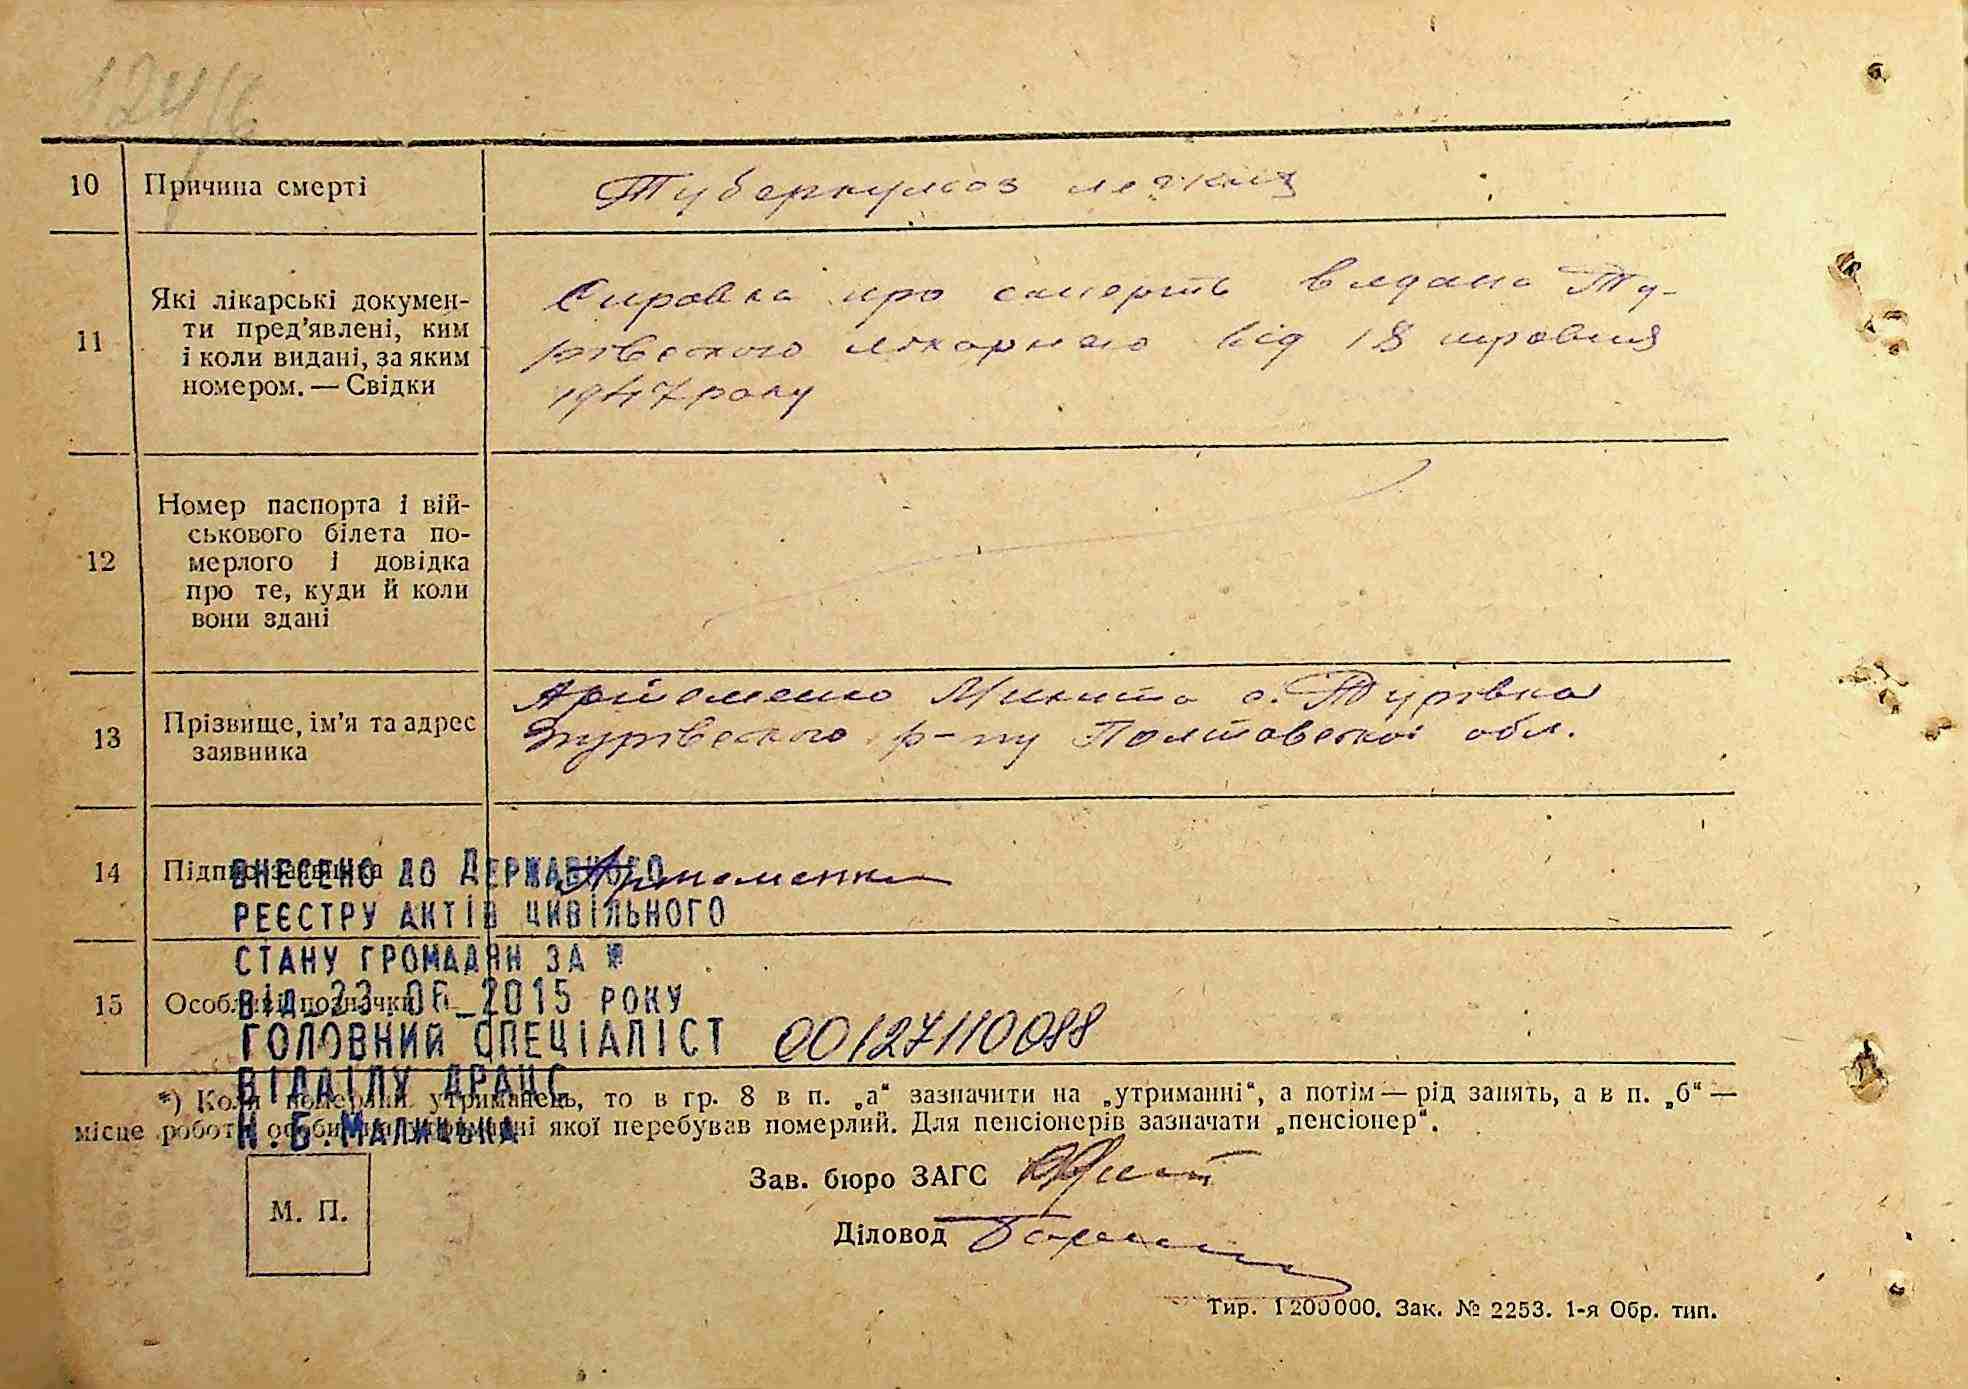 124/6
10 Причина смерті Туберкульоз легких
11 Які лікарські докумен-
ти пред'явлені, ким
і коли видані, за яким
номером. — Свідки
Справка про смерть видана Ту-
рівською лікарнею від 18 травня
1947 року
12 Номер паспорта і вій-
ськового білета по-
мерлого і довідка
про те, куди й коли
вони здані
13 Прізвище, ім'я та адрес
заявника
Артеменко Микита с. Турівка
Турівського р-ну Полтавської обл.
14 Підпис заявника Артеменко
ВНЕСЕНО ДО ДЕРЖАВНОГО
РЕЄСТРУ АКТІВ ЦИВІЛЬНОГО
СТАНУ ГРОМАДЯН ЗА №
ВІД 23.06 2015 РОКУ
15 Особливі позначки
ГОЛОВНИЙ СПЕЦІАЛІСТ 00127110088
ВІДДІЛУ ДРАЦС
*) Коли померлий утриманець, то в гр. 8 в п. „а“ зазначити на „утриманні“, а потім — рід занять, а в п. „б“ —
місце роботи особи, на утриманні якої перебував померлий. Для пенсіонерів зазначати „пенсіонер“.
Н.Б.МАЛИЦЬКА
Зав. бюро ЗАГС
М. П.
Діловод
Тир. 1200000. Зак. № 2253. 1-я Обр. тип.